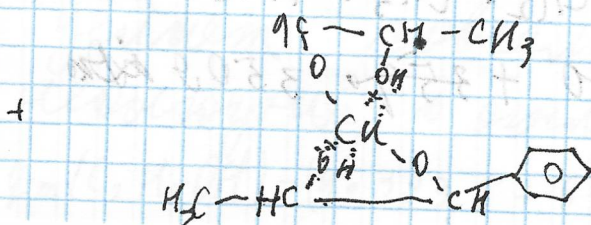 CH - CH3
O OH
+
CH
O H O
H3C - HC CH